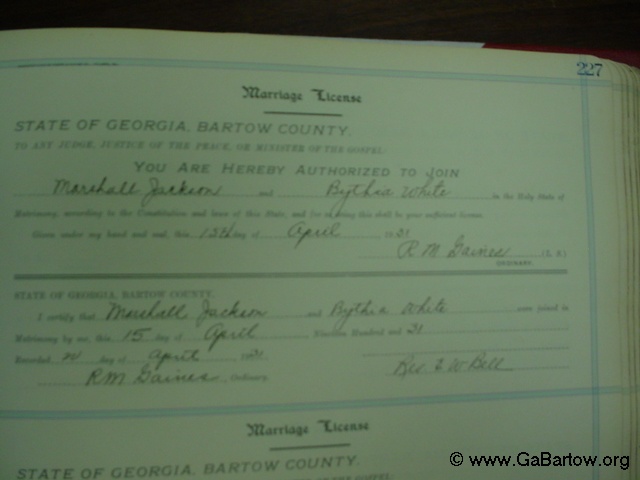 227
Marriage License
STATE OF GEORGIA, BARTOW COUNTY.
TO ANY JUDGE, JUSTICE OF THE PEACE, OR MINISTER OF THE GOSPEL:
YOU ARE HEREBY AUTHORIZED TO JOIN
Marshall Jackson and Bythia White in the Holy State of
Matrimony, according to the Constitution and laws of this State, and for so doing this shall be your sufficient license.
Given under my hand and seal, this 15th day of April 1931
R M Gaines (L. S.)
ORDINARY.
STATE OF GEORGIA, BARTOW COUNTY.
I certify that Marshall Jackson and Bythia White were joined in
Matrimony by me, this 15 day of April Nineteen Hundred and 31
Recorded day of April 1931
R M Gaines, Ordinary. Rev. W Bell
Marriage License
STATE OF GEORGIA, BARTOW COUNTY.
© www.GaBartow.org